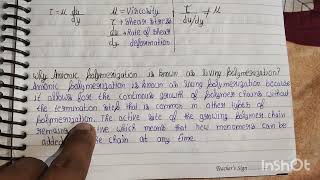 τ = μ du/dy
μ = Viscosity
τ = Shear stress
du/dy = Rate of shear deformation
τ / du/dy = μ
Why Anionic polymerization is known as living polymerization?
Anionic polymerization is known as living polymerization because
it allows for the continuous growth of polymer chains without
the termination step that is common in other types of
polymerization. The active site of the growing polymer chain
remains active which means that new monomers can be
added the chain at any time.
Teacher's Sign
InShOt